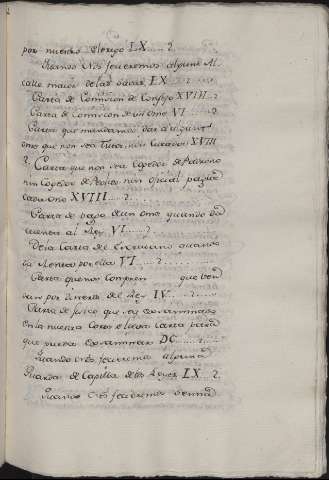 por nuestro Clerigo LX.....?
Quando Nos ficieremos alguno Al
calle maior de las sacas LX.....?
Carta de Comision de Consejo XVIII..?
Carta de Comision de un ome VI.....?
Carta que mandamos dar a algun
ome que non sea Tutor, nin Curador XVIII
?. Carta que non sea Cogedor de
nin Cogedor de Pechos nin oficial pague
cada ome XVIII.....?
Carta de pago de un ome quando da
cuenta al Rey VI......?
De la Carta de quando
da por ella VI.....?.....
Carta que nos Compren que ben
dan por Deuda del Rey IV..?......
Carta de fisico que sea examinado
en la nuestra Corte e lieva Carta para
que pueda examinar DC......?.....
Quando Nos ficieremos alguna
Guarda de Capilla de los Reyes LX ?
Quando Nos ficieremos